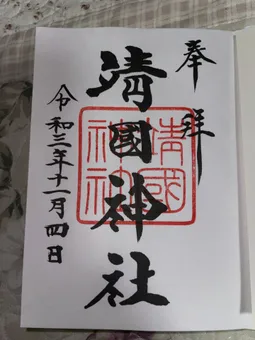 奉拝
靖国神社
靖國神社
令和三年十一月四日